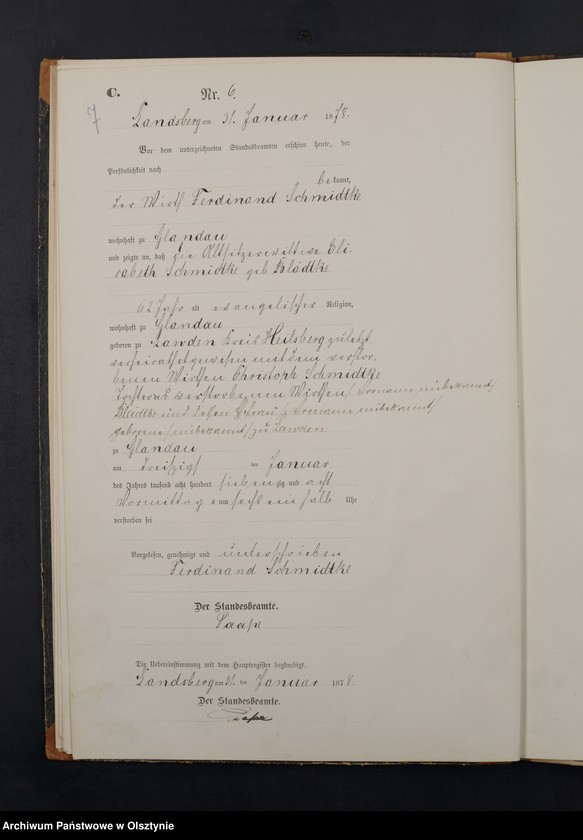 C.
Nr. 6.
7
Landsberg am 31. Januar 1878.
Vor dem unterzeichneten Standesbeamten erschien heute, der
Persönlichkeit nach
bekannt,
der Wirth Ferdinand Schmidtke
wohnhaft zu Glandau
und zeigte an, daß die Altsitzerwittwe Eli-
sabeth Schmidtke geb Blödtke
62 Jahr alt evangelischer Religion,
wohnhaft zu Glandau
geboren zu Lawden Kreis Heilsberg zuletzt
verheirathet gewesen mit dem verstor-
benen Wirthen Christoph Schmidtke
Tochter des verstorbenen Wirthen /: Vorname unbekannt :/
und dessen Ehefrau /: Vorname unbekannt :/
geborene /: unbekannt :/ zu Lawden
zu Glandau
am dreißigst ten Januar
des Jahres tausend acht hundert siebenzig und acht
Vormittags um sechs ein halb Uhr
verstorben sei
Vorgelesen, genehmigt und unterschrieben
Ferdinand Schmidtke
Der Standesbeamte.
Die Uebereinstimmung mit dem Hauptregister beglaubigt.
Landsberg am 31. ten Januar 1878.
Der Standesbeamte.
Archiwum Państwowe w Olsztynie